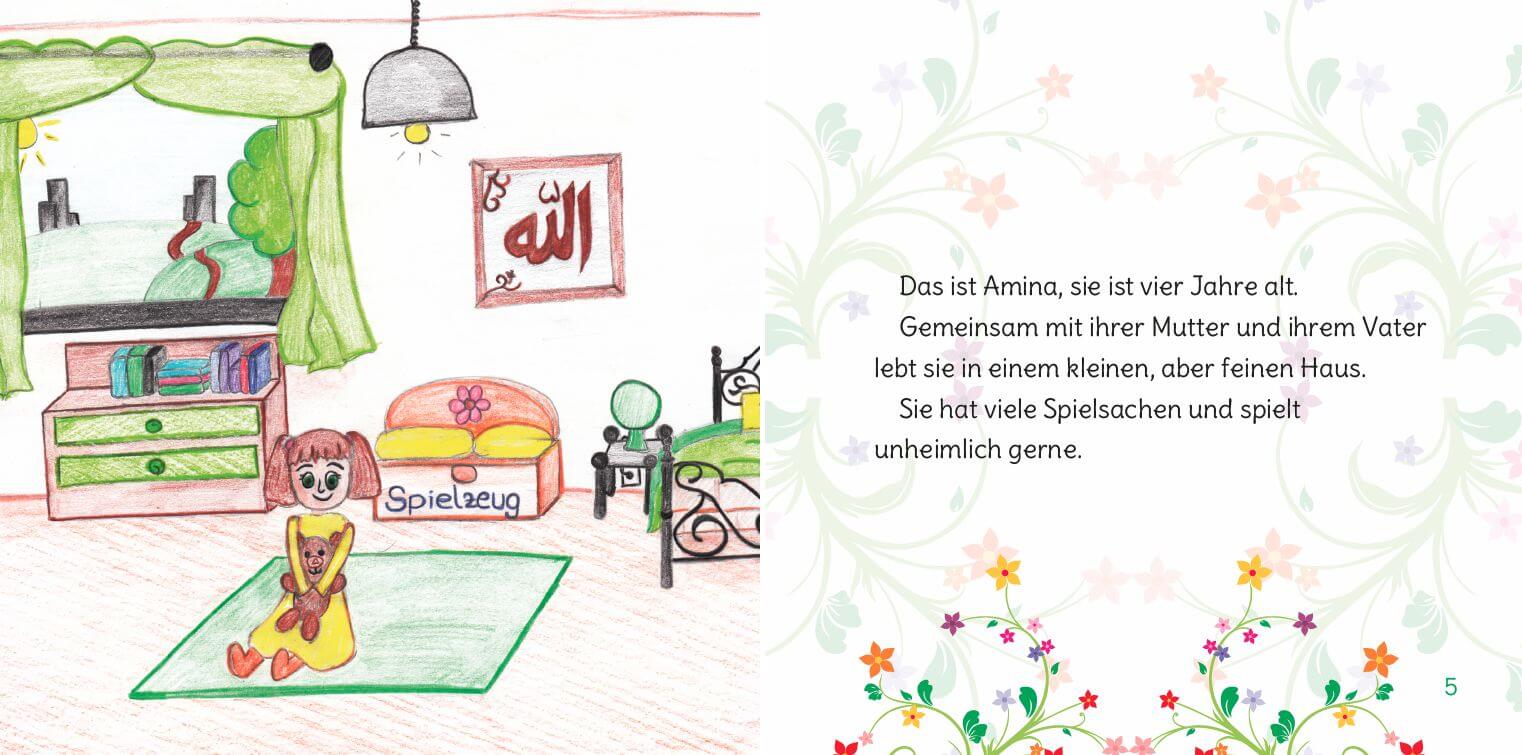 الله
Spielzeug
Das ist Amina, sie ist vier Jahre alt.
Gemeinsam mit ihrer Mutter und ihrem Vater
lebt sie in einem kleinen, aber feinen Haus.
Sie hat viele Spielsachen und spielt
unheimlich gerne.
5